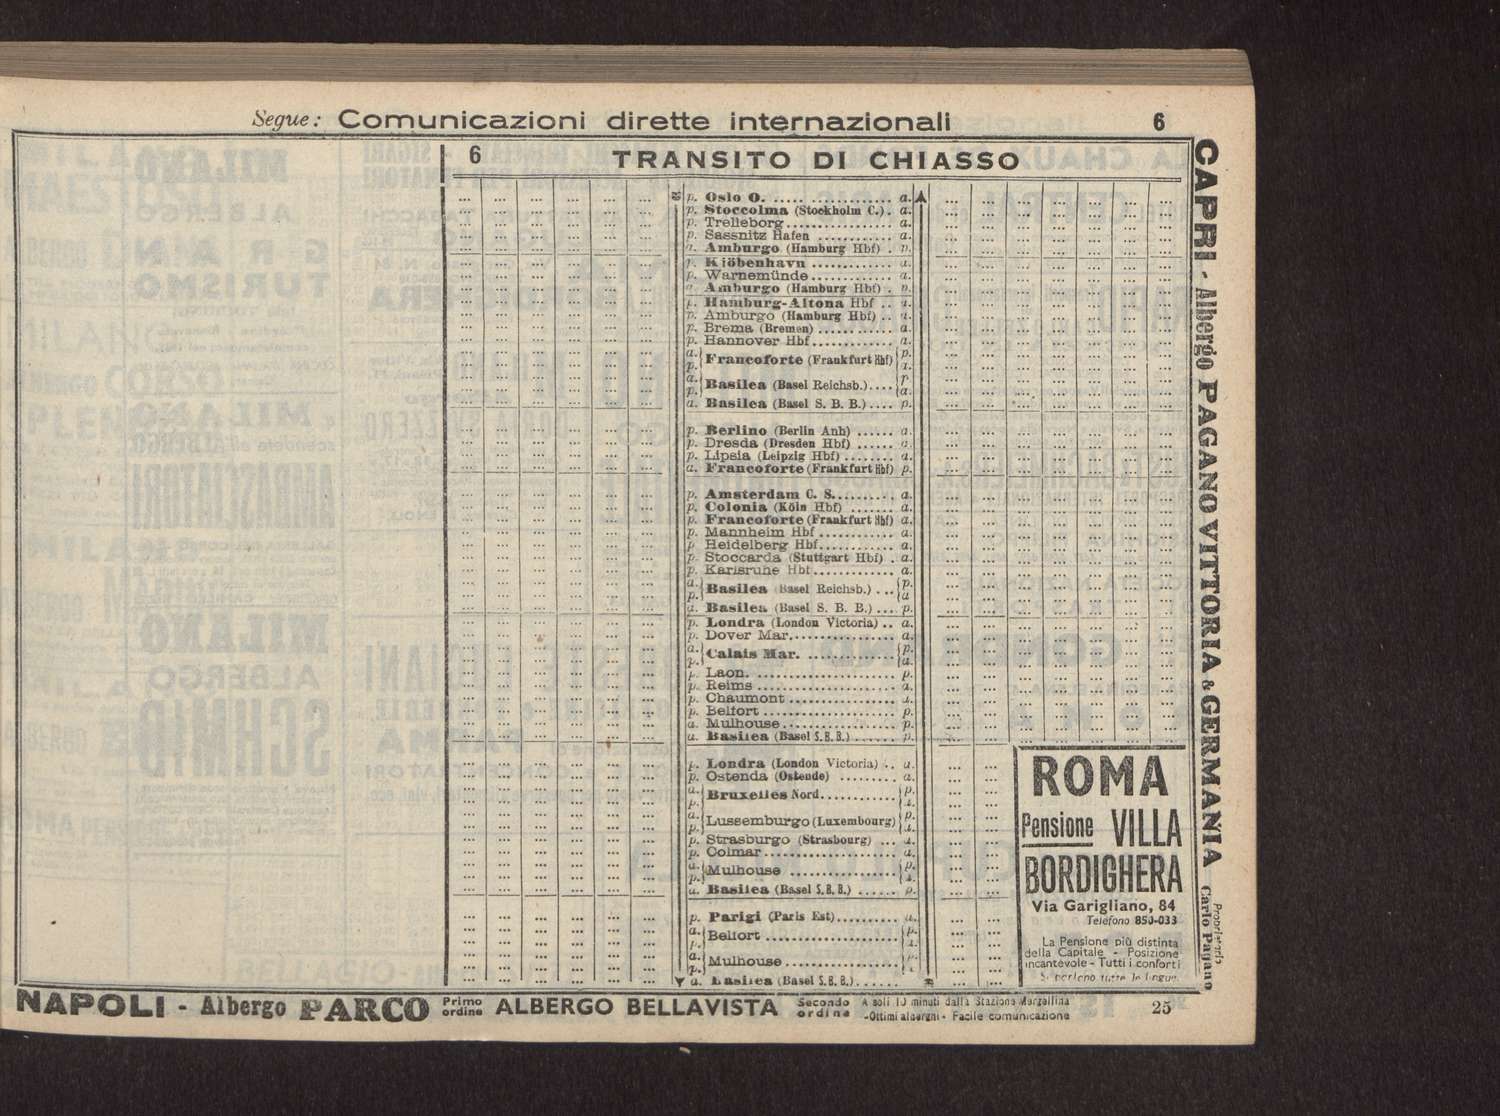 Segue: Comunicazioni dirette internazionali 6
6 TRANSITO DI CHIASSO
p. Oslo O. a.
p. Stoccolma (Stockholm C.) a.
p. Trelleborg a.
p. Sassnitz Hafen a.
a. Amburgo (Hamburg Hbf) p.
p. Kiöbenhavn a.
p. Warnemünde a.
a. Amburgo (Hamburg Hbf) p.
p. Hamburg-Altona Hbf a.
p. Amburgo (Hamburg Hbf) a.
p. Brema (Bremen) a.
p. Hannover Hbf a.
a. p. Francoforte (Frankfurt Hbf) p. a.
a. p. Basilea (Basel Reichsb.) p. a.
a. Basilea (Basel S. B. B.) p.
p. Berlino (Berlin Anh) a.
p. Dresda (Dresden Hbf) a.
p. Lipsia (Leipzig Hbf) a.
a. Francoforte (Frankfurt Hbf) p.
p. Amsterdam C. S. a.
p. Colonia (Köln Hbf) a.
p. Francoforte (Frankfurt Hbf) a.
p. Mannheim Hbf a.
p. Heidelberg Hbf a.
p. Stoccarda (Stuttgart Hbf) a.
p. Karlsruhe Hbf a.
a. p. Basilea (Basel Reichsb.) p. a.
a. Basilea (Basel S. B. B.) p.
p. Londra (London Victoria) a.
p. Dover Mar. a.
a. p. Calais Mar. p. a.
p. Laon. p.
p. Reims a.
p. Chaumont a.
p. Belfort p.
a. Mulhouse p.
a. Basilea (Basel S.B.B.) p.
p. Londra (London Victoria) a.
p. Ostenda (Ostende) a.
a. p. Bruxelles Nord p. a.
a. p. Lussemburgo (Luxembourg) p. a.
p. Strasburgo (Strasbourg) a.
p. Colmar a.
a. p. Mulhouse p. a.
a. Basilea (Basel S.B.B.) p.
p. Parigi (Paris Est) a.
a. p. Belfort p. a.
a. p. Mulhouse p. a.
a. Basilea (Basel S.B.B.) p.
ROMA
Pensione VILLA
BORDIGHERA
Via Garigliano, 84
Telefono 850-033
La Pensione più distinta
della Capitale - Posizione
incantevole - Tutti i conforti
Si parlano tutte le lingue
CAPRI - Albergo PAGANO VITTORIA & GERMANIA Proprietario Carlo Pagano
NAPOLI - Albergo PARCO Primo ordine ALBERGO BELLAVISTA Secondo ordine A soli 10 minuti dalla Stazione Margellina
-Ottimi alberghi - Facile comunicazione
25